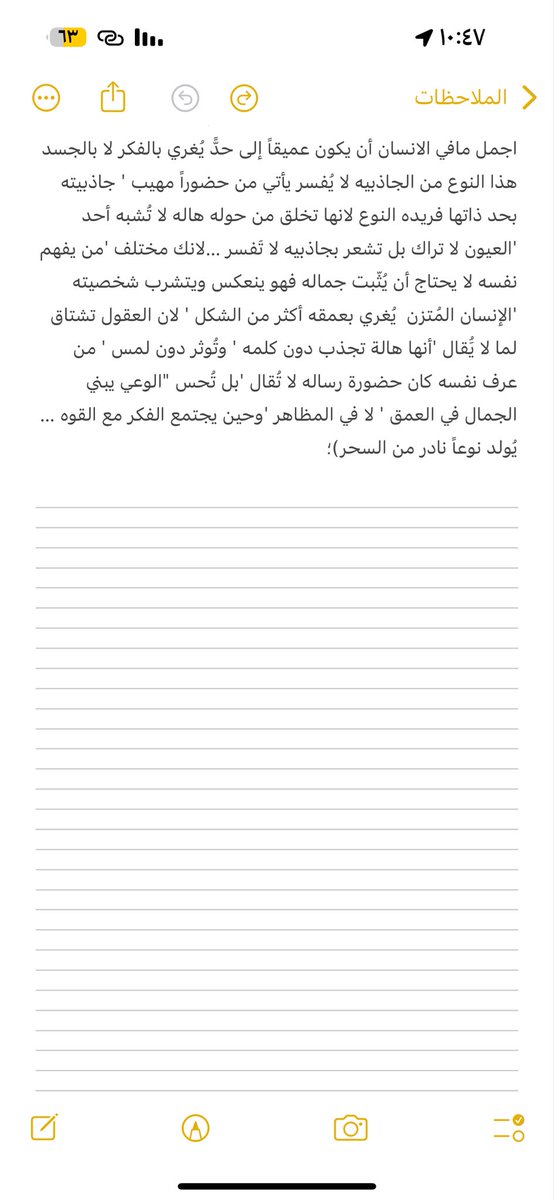 ١٠:٤٧
٦٣
الملاحظات
اجمل مافي الانسان أن يكون عميقاً إلى حدًّ يُغري بالفكر لا بالجسد
هذا النوع من الجاذبيه لا يُفسر يأتي من حضوراً مهيب ' جاذبيته
بحد ذاتها فريده النوع لانها تخلق من حوله هاله لا تُشبه أحد
'العيون لا تراك بل تشعر بجاذبيه لا تَفسر ...لانك مختلف 'من يفهم
نفسه لا يحتاج أن يُثّبت جماله فهو ينعكس ويتشرب شخصيته
'الإنسان المُتزن  يُغري بعمقه أكثر من الشكل ' لان العقول تشتاق
لما لا يُقال 'أنها هالة تجذب دون كلمه ' وتُوثر دون لمس ' من
عرف نفسه كان حضورة رساله لا تُقال 'بل تُحس "الوعي يبني
الجمال في العمق ' لا في المظاهر 'وحين يجتمع الفكر مع القوه ...
يُولد نوعاً نادر من السحر)؛